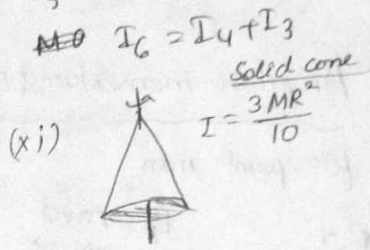 I₆ = I₄ + I₃
Solid cone
(xi)
I = 3MR²/10